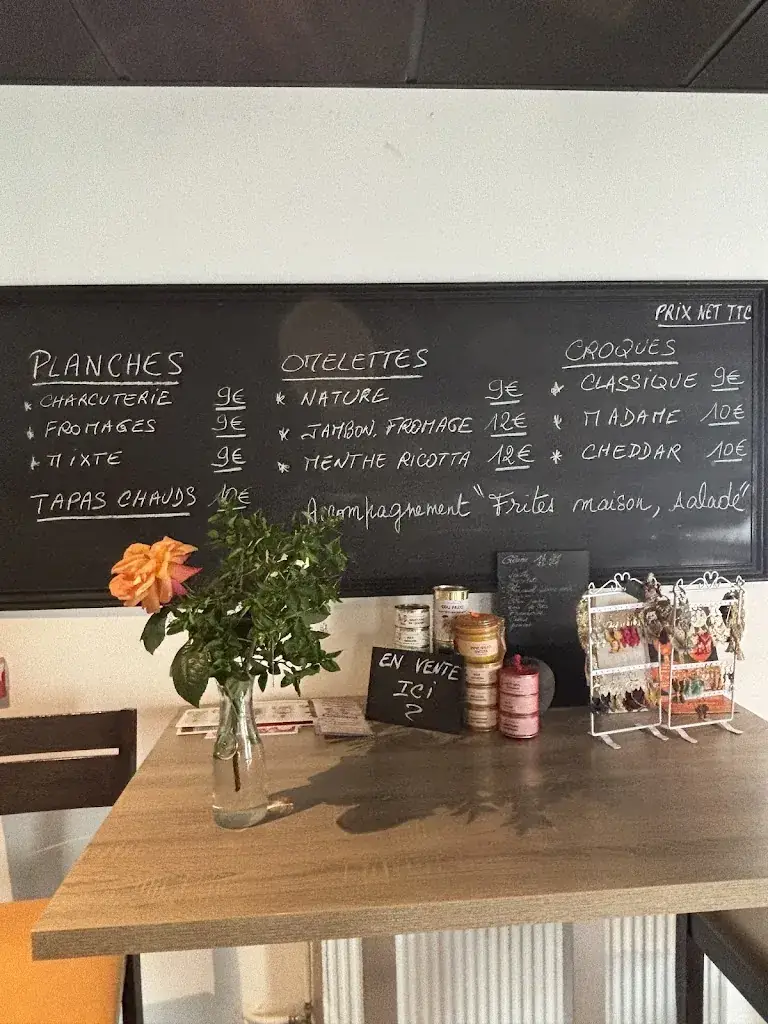 PRIX NET TTC
PLANCHES
* CHARCUTERIE 9€
* FROMAGES 9€
* MIXTE 9€
TAPAS CHAUDS
OMELETTES
* NATURE 9€
* JAMBON, FROMAGE 12€
* MENTHE RICOTTA 12€
CROQUES
* CLASSIQUE 9€
* MADAME 10€
* CHEDDAR 10€
Accompagnement "Frites maison, salade"
EN VENTE
ICI